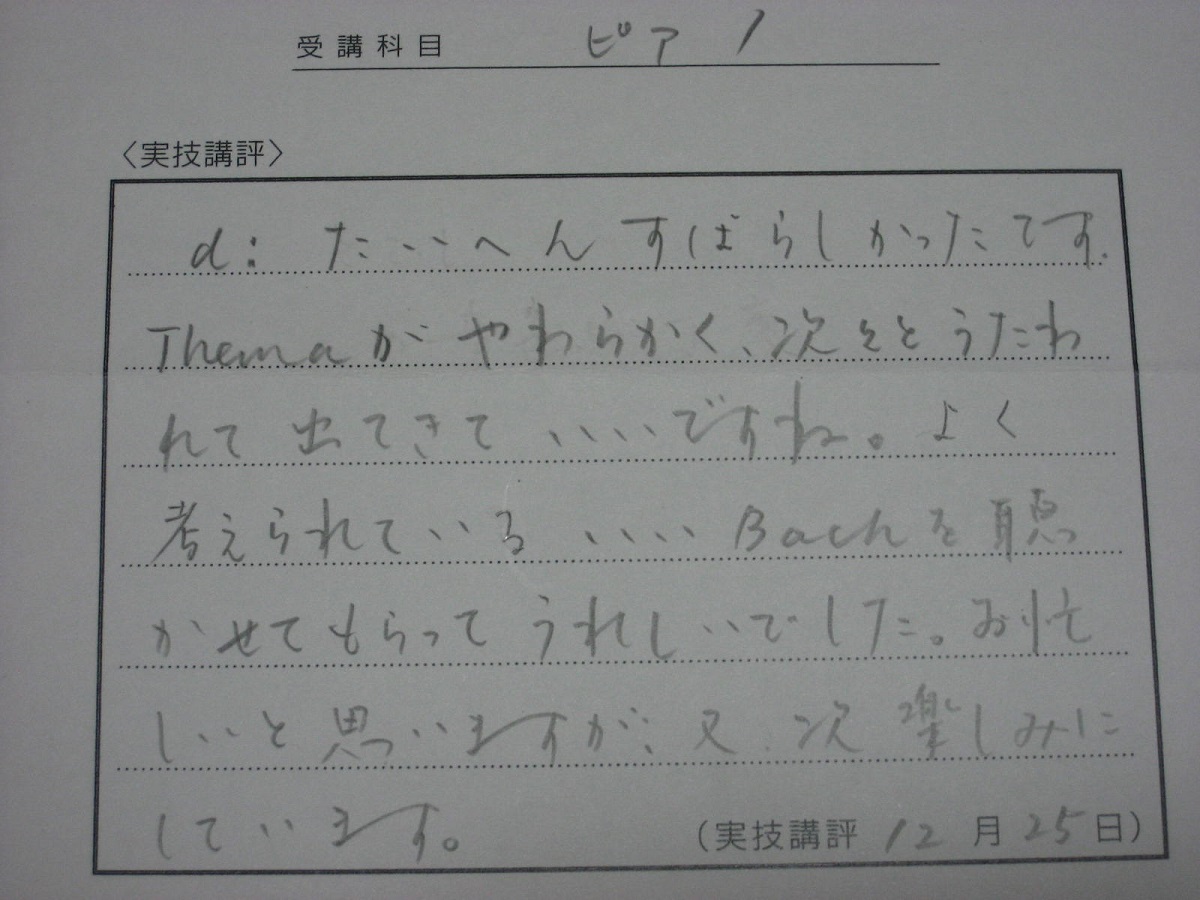 受講科目 ピアノ
〈実技講評〉
d: たいへんすばらしかったです.
Themaがやわらかく、次々とうたわ
れて出てきて いいですね。よく
考えられている いい Bachを聴
かせてもらってうれしいでした。お忙
しいと思いますが、又、次 楽しみに
しています。
(実技講評 12月25日)